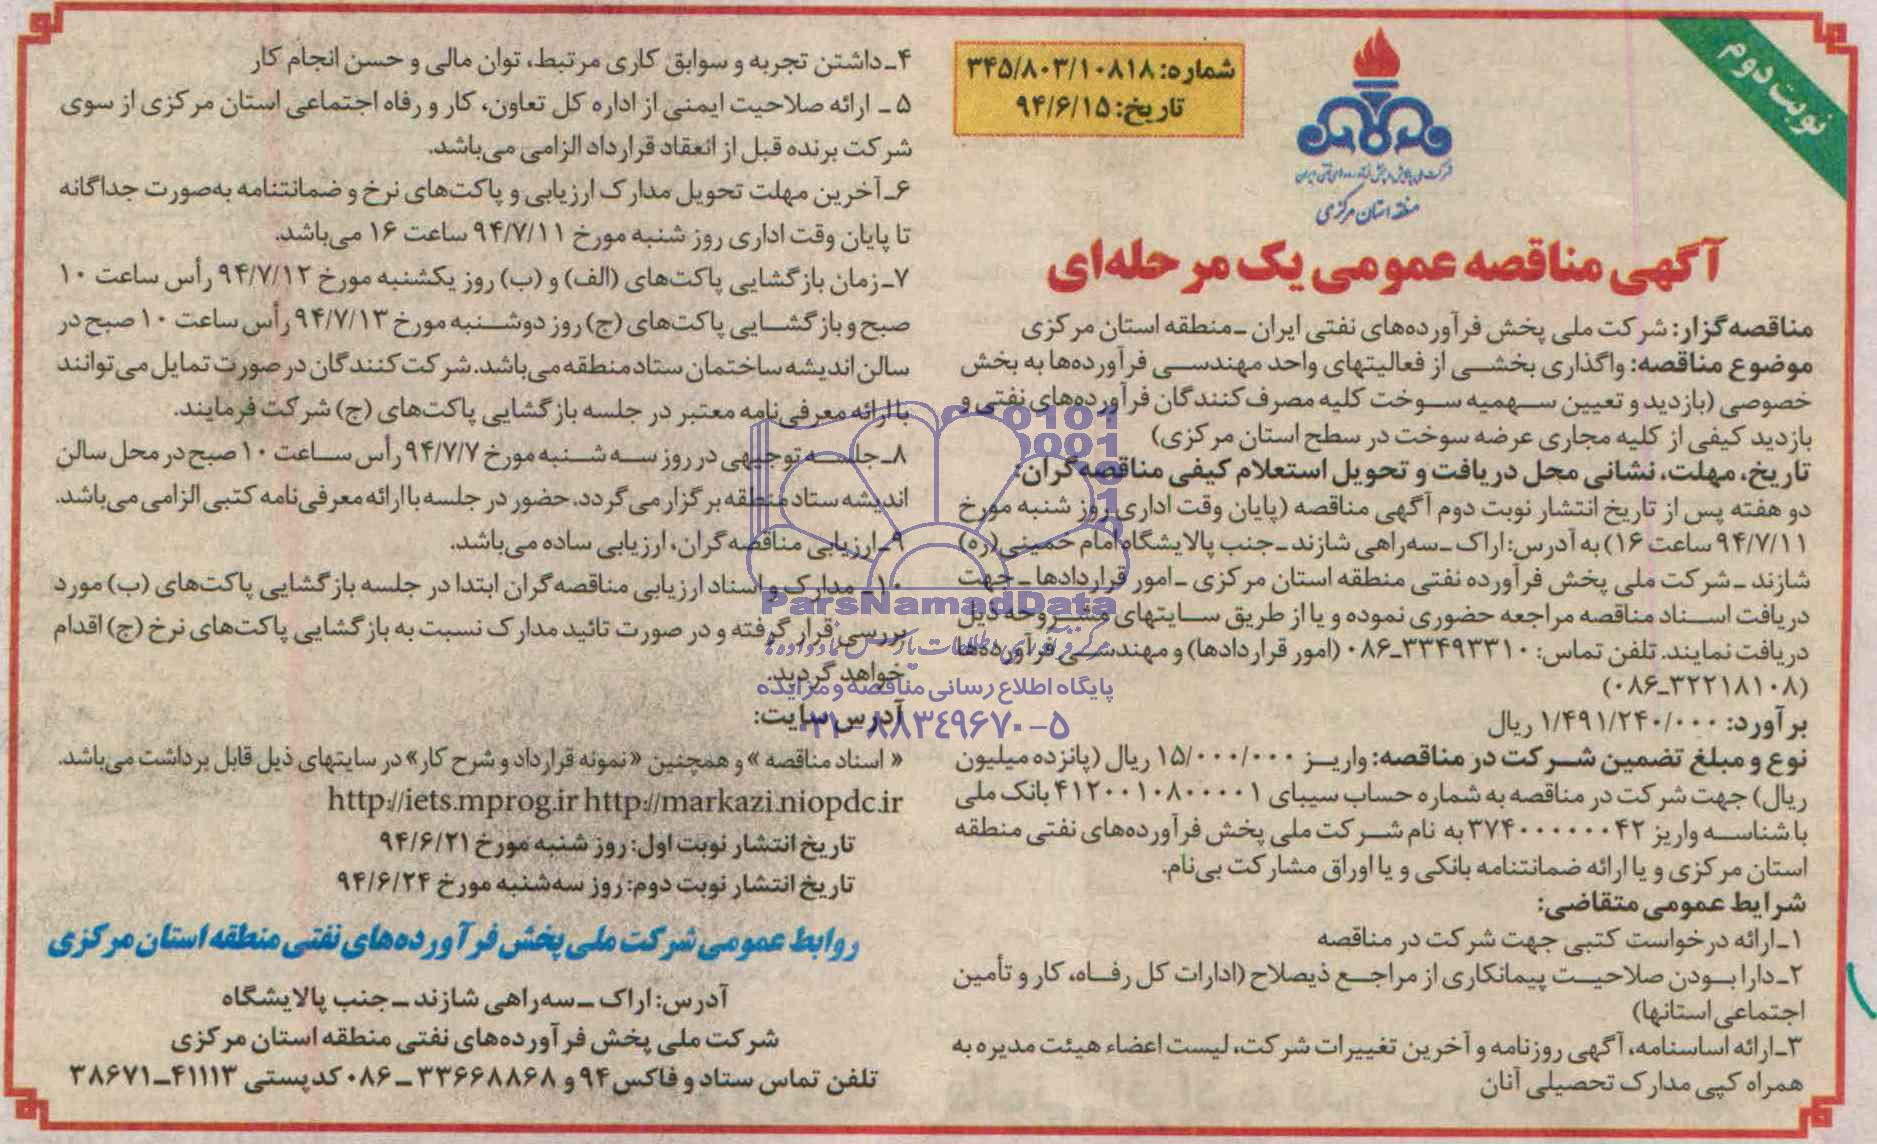 نوبت دوم
شرکت ملی پخش فرآورده‌های نفتی ایران
منطقه استان مرکزی
شماره: ۳۴۵/۸۰۳/۱۰۸۱۸
تاریخ: ۹۴/۶/۱۵
آگهی مناقصه عمومی یک مرحله‌ای
مناقصه‌گزار: شرکت ملی پخش فرآورده‌های نفتی ایران ـ منطقه استان مرکزی
موضوع مناقصه: واگذاری بخشی از فعالیتهای واحد مهندسی فرآورده‌ها به بخش
خصوصی (بازدید و تعیین سهمیه سوخت کلیه مصرف‌کنندگان فرآورده‌های نفتی و
بازدید کیفی از کلیه مجاری عرضه سوخت در سطح استان مرکزی)
تاریخ، مهلت، نشانی محل دریافت و تحویل استعلام کیفی مناقصه‌گران:
دو هفته پس از تاریخ انتشار نوبت دوم آگهی مناقصه (پایان وقت اداری روز شنبه مورخ
۹۴/۷/۱۱ ساعت ۱۶) به آدرس: اراک ـ سه‌راهی شازند ـ جنب پالایشگاه امام خمینی(ره)
شازند ـ شرکت ملی پخش فرآورده نفتی منطقه استان مرکزی ـ امور قراردادها ـ جهت
دریافت اسناد مناقصه مراجعه حضوری نموده و یا از طریق سایتهای مشروحه ذیل
دریافت نمایند. تلفن تماس: ۳۳۴۹۳۳۱۰ـ۰۸۶ (امور قراردادها) و مهندسی فرآورده‌ها
(۳۲۲۱۸۱۰۸ـ۰۸۶)
برآورد: ۱/۴۹۱/۲۴۰/۰۰۰ ریال
نوع و مبلغ تضمین شرکت در مناقصه: واریز ۱۵/۰۰۰/۰۰۰ ریال (پانزده میلیون
ریال) جهت شرکت در مناقصه به شماره حساب سیبای ۴۱۲۰۰۱۰۸۰۰۰۰۱ بانک ملی
با شناسه واریز ۳۷۴۰۰۰۰۰۰۰۴۲ به نام شرکت ملی پخش فرآورده‌های نفتی منطقه
استان مرکزی و یا ارائه ضمانتنامه بانکی و یا اوراق مشارکت بی‌نام.
شرایط عمومی متقاضی:
۱ـ ارائه درخواست کتبی جهت شرکت در مناقصه
۲ـ دارا بودن صلاحیت پیمانکاری از مراجع ذیصلاح (ادارات کل رفاه، کار و تأمین
اجتماعی استانها)
۳ـ ارائه اساسنامه، آگهی روزنامه و آخرین تغییرات شرکت، لیست اعضاء هیئت مدیره به
همراه کپی مدارک تحصیلی آنان
۴ـ داشتن تجربه و سوابق کاری مرتبط، توان مالی و حسن انجام کار
۵ ـ ارائه صلاحیت ایمنی از اداره کل تعاون، کار و رفاه اجتماعی استان مرکزی از سوی
شرکت برنده قبل از انعقاد قرارداد الزامی می‌باشد.
۶ـ آخرین مهلت تحویل مدارک ارزیابی و پاکت‌های نرخ و ضمانتنامه به‌صورت جداگانه
تا پایان وقت اداری روز شنبه مورخ ۹۴/۷/۱۱ ساعت ۱۶ می‌باشد.
۷ـ زمان بازگشایی پاکت‌های (الف) و (ب) روز یکشنبه مورخ ۹۴/۷/۱۲ رأس ساعت ۱۰
صبح و بازگشایی پاکت‌های (ج) روز دوشنبه مورخ ۹۴/۷/۱۳ رأس ساعت ۱۰ صبح در
سالن اندیشه ساختمان ستاد منطقه می‌باشد. شرکت‌کنندگان در صورت تمایل می‌توانند
با ارائه معرفی‌نامه معتبر در جلسه بازگشایی پاکت‌های (ج) شرکت فرمایند.
۸ـ جلسه توجیهی در روز سه شنبه مورخ ۹۴/۷/۷ رأس ساعت ۱۰ صبح در محل سالن
اندیشه ستاد منطقه برگزار می گردد. حضور در جلسه با ارائه معرفی‌نامه کتبی الزامی می‌باشد.
۹ـ ارزیابی مناقصه‌گران، ارزیابی ساده می‌باشد.
۱۰ـ مدارک و اسناد ارزیابی مناقصه‌گران ابتدا در جلسه بازگشایی پاکت‌های (ب) مورد
بررسی قرار گرفته و در صورت تائید مدارک نسبت به بازگشایی پاکت‌های نرخ (ج) اقدام
خواهد گردید.
آدرس سایت:
« اسناد مناقصه » و همچنین «نمونه قرارداد و شرح کار» در سایتهای ذیل قابل برداشت می‌باشد.
http://iets.mprog.ir http://markazi.niopdc.ir
تاریخ انتشار نوبت اول: روز شنبه مورخ ۹۴/۶/۲۱
تاریخ انتشار نوبت دوم: روز سه‌شنبه مورخ ۹۴/۶/۲۴
روابط عمومی شرکت ملی پخش فرآورده‌های نفتی منطقه استان مرکزی
آدرس: اراک ـ سه‌راهی شازند ـ جنب پالایشگاه
شرکت ملی پخش فرآورده‌های نفتی منطقه استان مرکزی
تلفن تماس ستاد و فاکس ۹۴ و ۳۳۶۶۸۸۶۸ ـ ۰۸۶ کدپستی ۴۱۱۱۳ـ۳۸۶۷۱
ParsNamadData
مرکز فرآوری اطلاعات پارس نماد داده‌ها
پایگاه اطلاع رسانی مناقصه و مزایده
۰۲۱-۸۸۳۴۹۶۷۰-۵